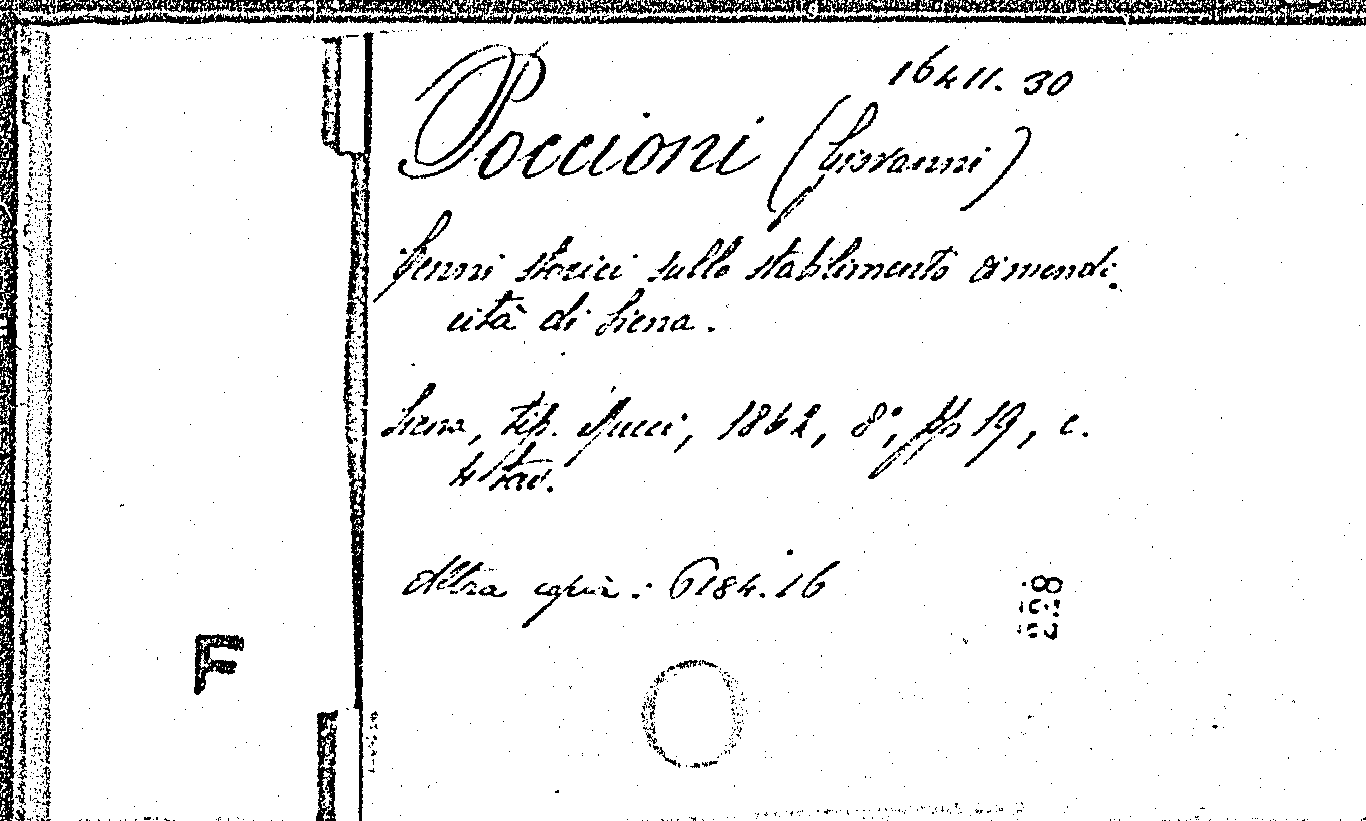 16411.30
Poccioni (Giovanni)
Cenni storici sullo stablimento di mendi-
cità di Siena.
Siena, tip. Mucci, 1862, 8°, pp 19, c.
4 tav.
Altra copia: 6184.16
228
F